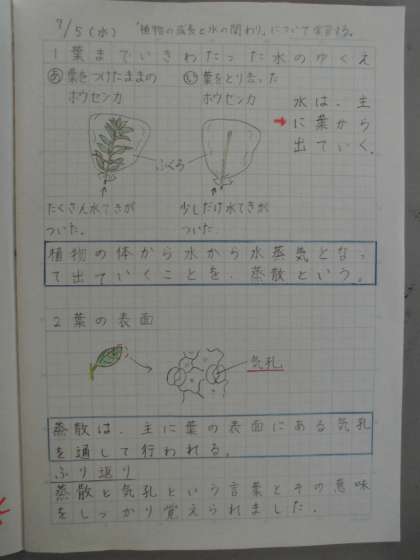 7/5(水) 「植物の成長と水の関わり」について学習する。
1 葉までいきわたった水のゆくえ
あ 葉をつけたままの
ホウセンカ
い 葉をとり去った
ホウセンカ
水は、主
に葉から
出ていく。
ふくろ
たくさん水てきが
ついた。
少しだけ水てきが
ついた
植物の体から水から水蒸気となっ
て出ていくことを、蒸散という。
2 葉の表面
気孔
蒸散は、主に葉の表面にある気孔
を通して行われる。
ふり返り
蒸散と気孔という言葉とその意味
をしっかり覚えられました。